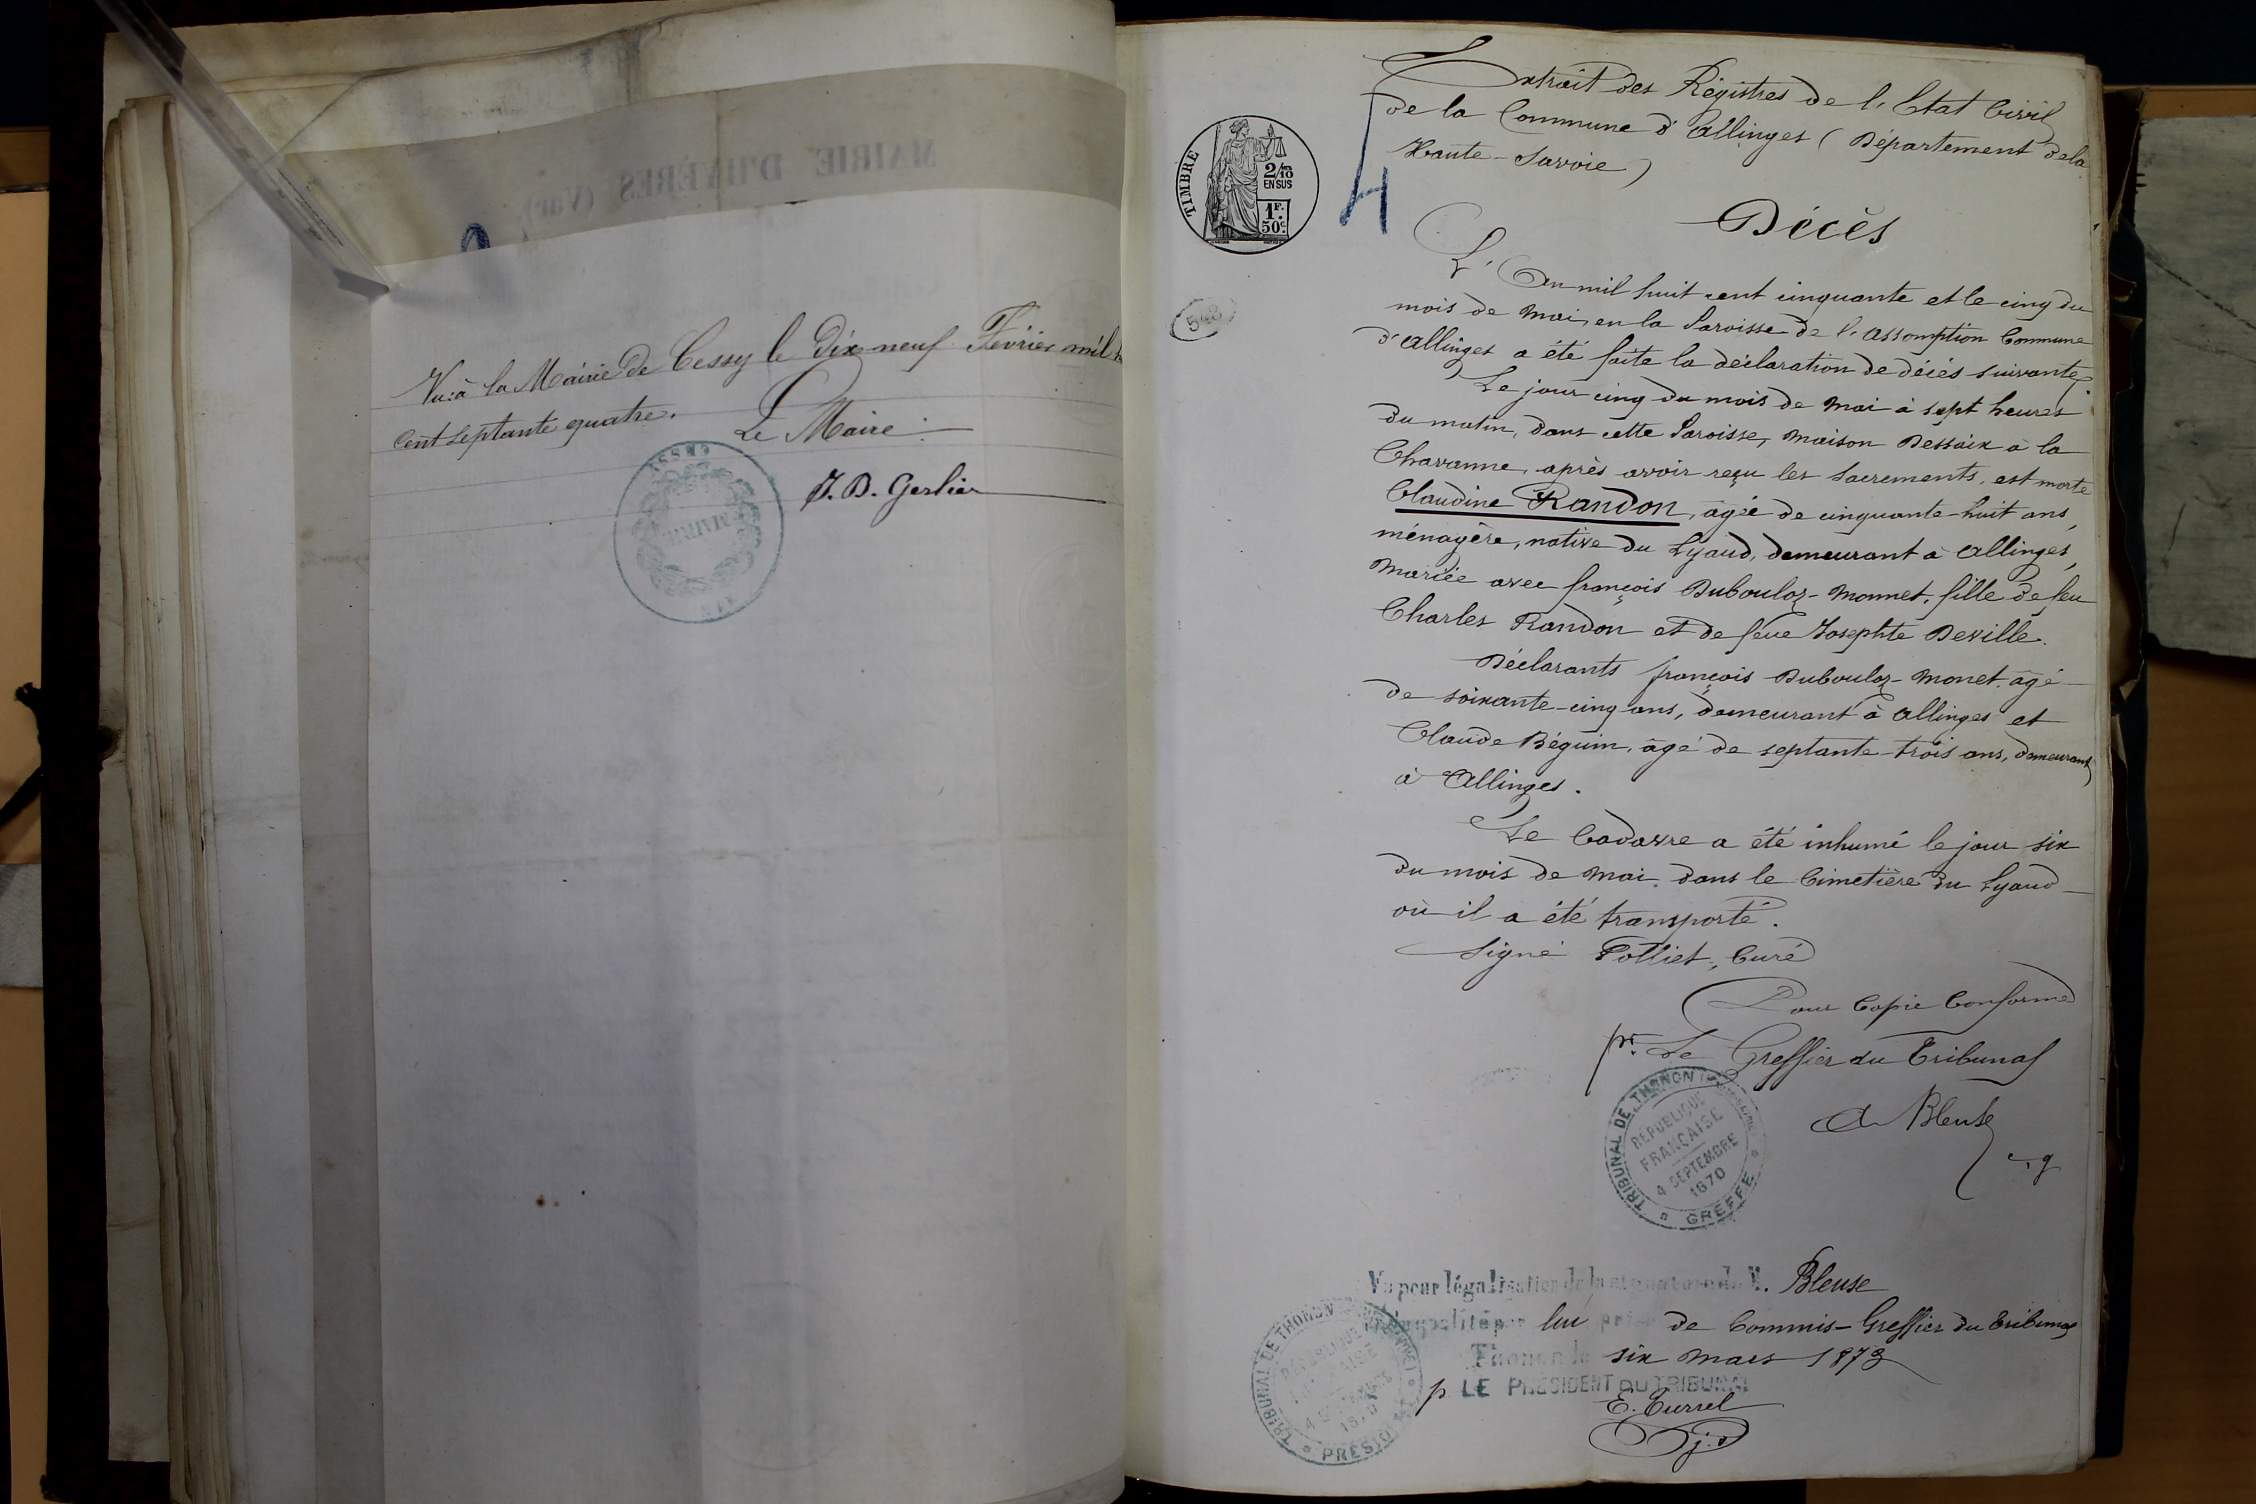 MAIRIE D'HYÈRES (Var)
Vu à la Mairie de Cessy le dix neuf Février mil
cent septante quatre.
Le Maire :
J. B. Gerlier
CESSY
MAIRIE
AIN
Extrait des Régistres de l'Etat Civil
de la Commune d'Allinges (Département de la
Haute-Savoie)
4
TIMBRE
2/10
EN SUS
1F.
50c.
Décès
548
L'An mil huit cent cinquante et le cinq du
mois de Mai, en la Paroisse de l'Assomption Commune
d'Allinges a été faite la déclaration de décés suivante.
Le jour cinq du mois de Mai à sept heures
du matin, dans cette Paroisse, maison Dessaix à la
Chavanne, après avoir reçu les Sacrements, est morte
Claudine Randon, agée de cinquante-huit ans,
ménagère, native du Lyaud, demeurant à Allinges,
Mariée avec françois Dubouloz-Monnet, fille de feu
Charles Randon et de feue Josephte Deville.
Déclarants françois Dubouloz-Monet, âgé
de soixante-cinq ans, demeurant à Allinges et
Claude Béguin, âgé de septante-trois ans, demeurant
à Allinges.
Le Cadavre a été inhumé le jour six
du mois de Mai, dans le Cimetière du Lyaud
où il a été transporté.
Signé Folliet, Curé
Pour Copie Conforme
pr. Le Greffier du Tribunal
A Bleuse
c. g
TRIBUNAL DE THONON
REPUBLIQUE
FRANÇAISE
4 SEPTEMBRE
1870
GREFFE
Vu pour légalisation de la signature de M. Bleuse
qualité par lui prise de Commis-Greffier du Tribunal
Thonon le six Mars 1873
p LE PRÉSIDENT DU TRIBUNAL
E. Currel
j. s
TRIBUNAL DE THONON
4 SEPTEMBRE
1870